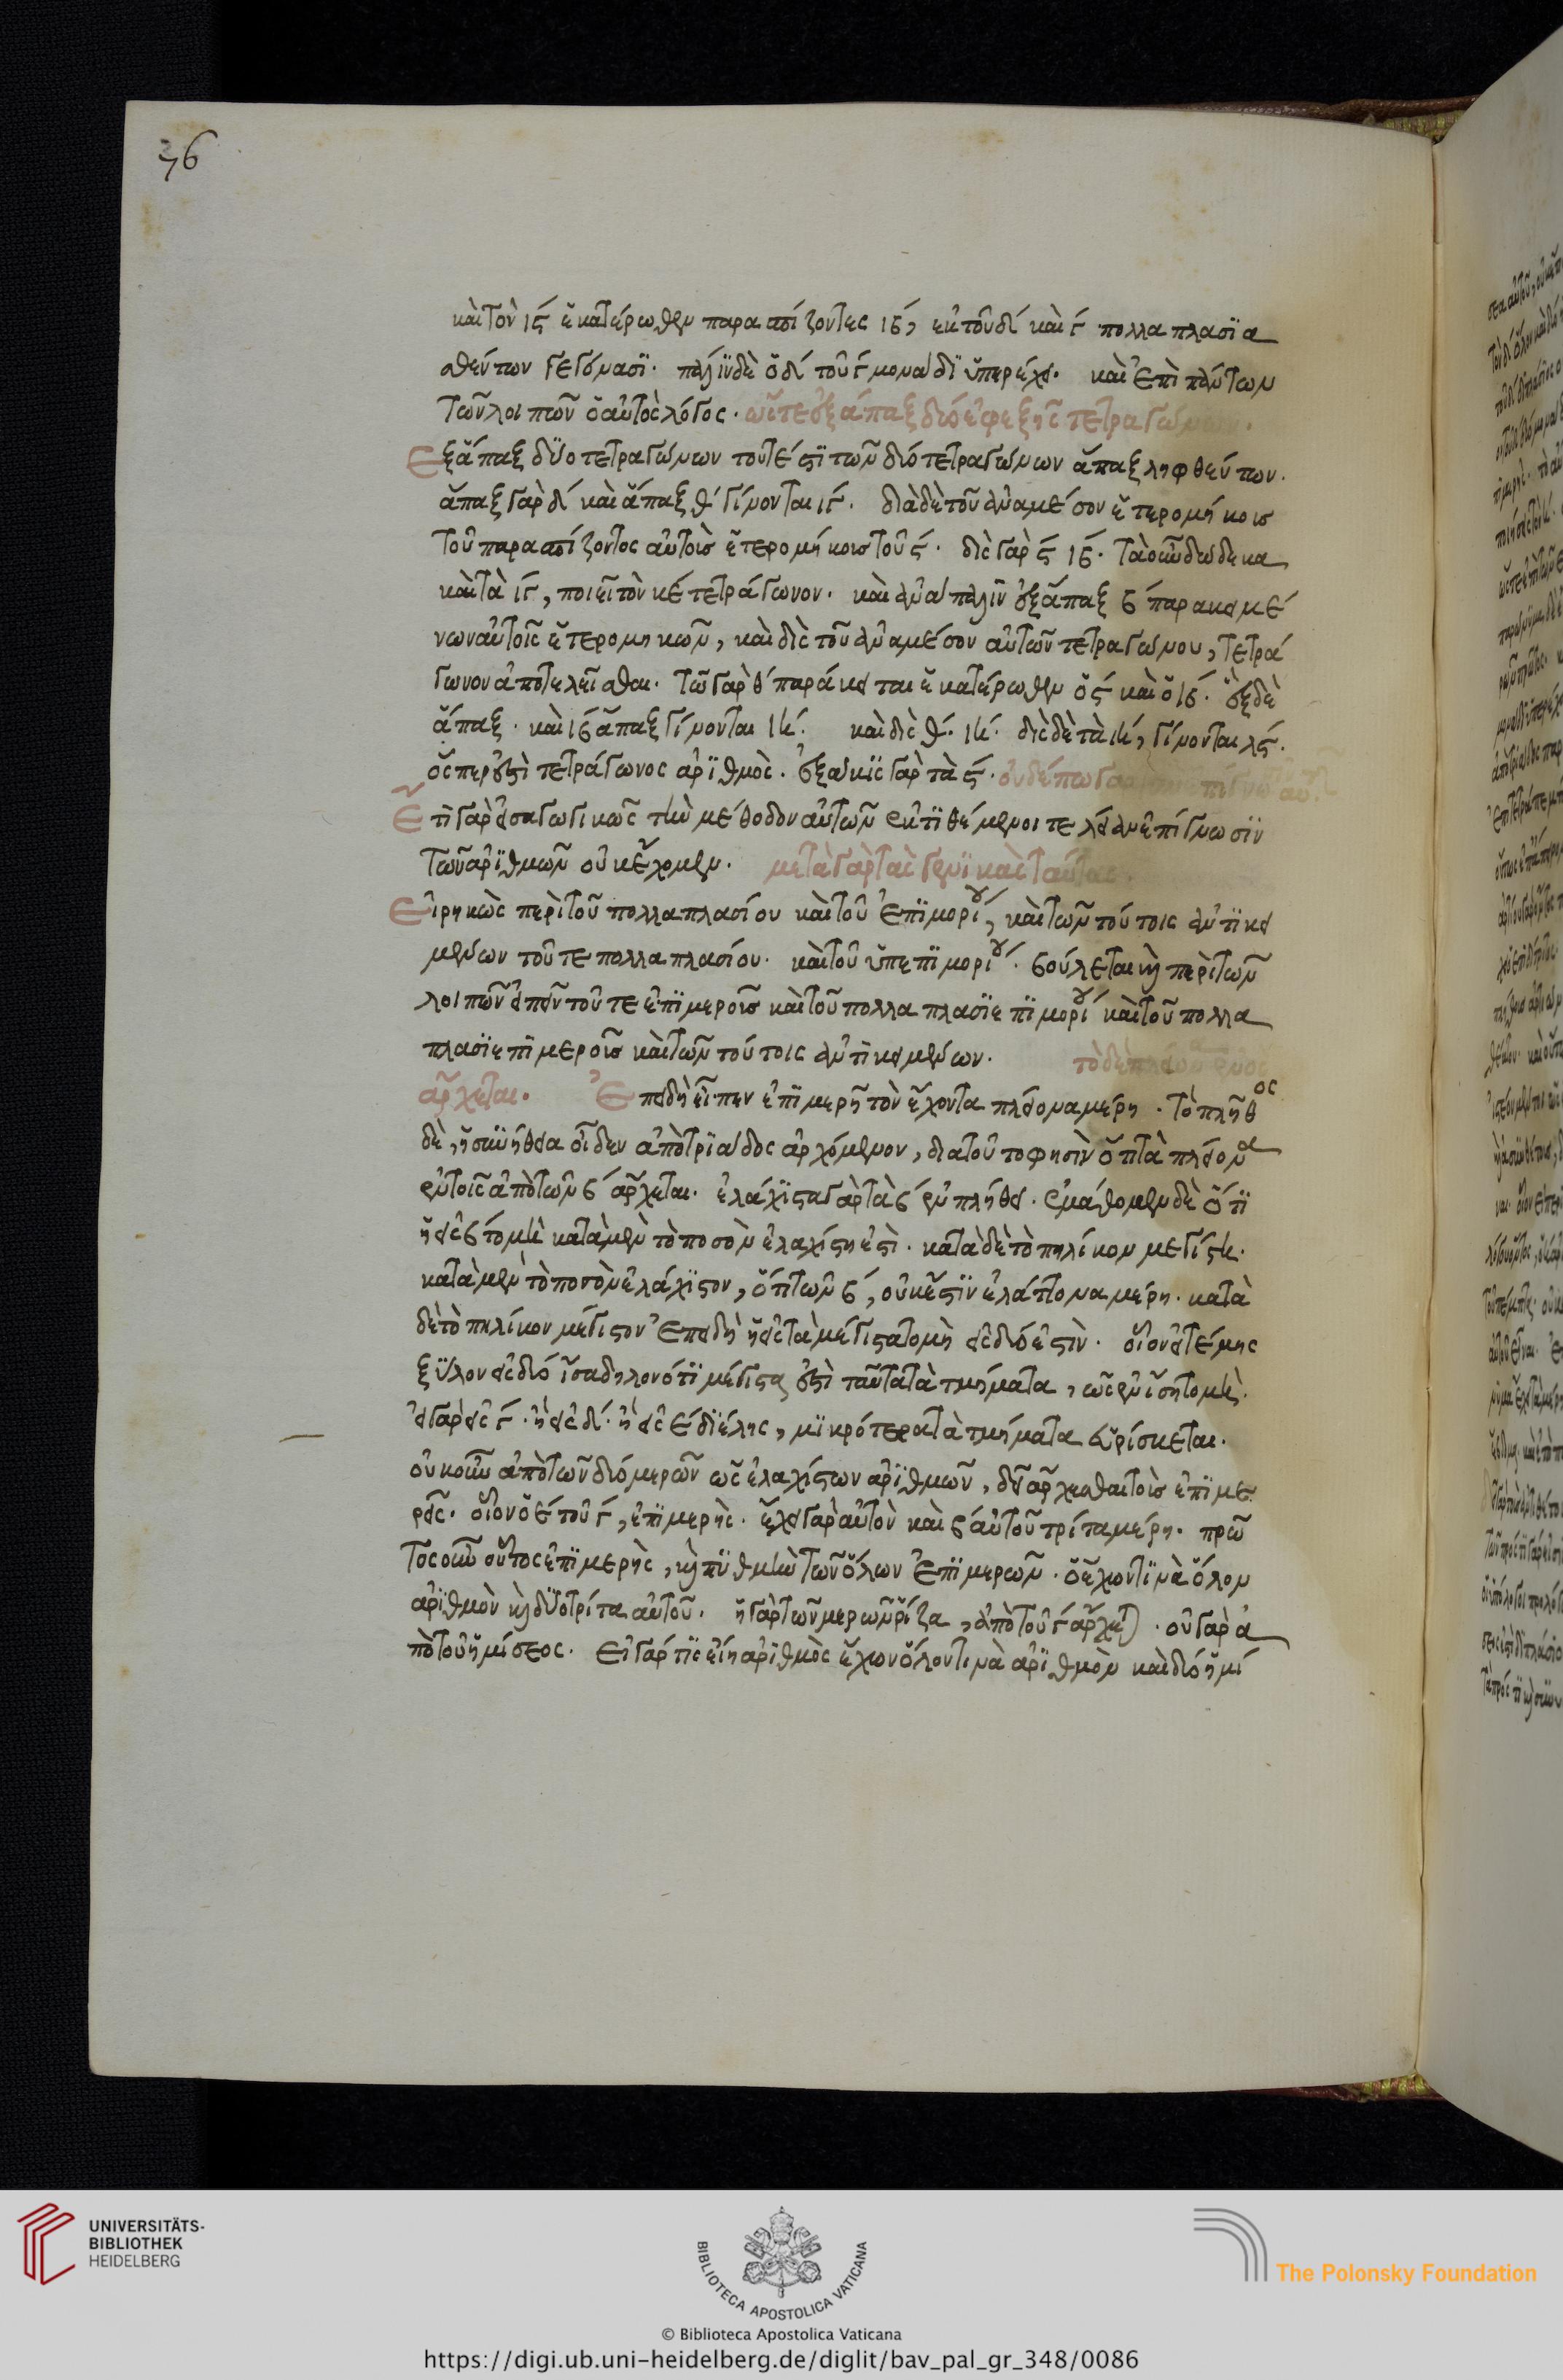 36
καὶ τὸν ις ἑκατέρωθεν παρασπίζοντες ιβ, ἐκ τοῦ δ καὶ γ πολλαπλασια
σθέντων γεγόνασι. πάλιν δὲ ὁ δ τοῦ γ μονάδι ὑπερέχει. καὶ ἐπὶ πάντων
τῶν λοιπῶν ὁ αὐτὸς λόγος. ὥστε ἐξ ἅπαξ δύο ἐφεξῆς τετραγώνων.
Ἐξ ἅπαξ δύο τετραγώνων τουτέστι τῶν δύο τετραγώνων ἅπαξ ληφθέντων.
ἅπαξ γὰρ δ καὶ ἅπαξ θ γίνονται ιγ. διὰ δὲ τοῦ ἀναμέσον ἑτερομήκους
τοῦ παρασπίζοντος αὐτοῖς ἑτερομήκους τοῦ ς. δὶς γὰρ ς ιβ. τὰ οὖν δώδεκα
καὶ τὰ ιγ, ποιεῖ τὸν κε τετράγωνον. καὶ ἀνάπαλιν ἐξ ἅπαξ β παρακειμέ
νων αὐτοῖς ἑτερομηκῶν, καὶ δὶς τοῦ ἀναμέσον αὐτῶν τετραγώνου, τετρά
γωνον ἀποτελεῖσθαι. τῷ γὰρ θ παράκειται ἑκατέρωθεν ὁ ς καὶ ὁ ιβ. ὃς δὲ
ἅπαξ. καὶ ιβ ἅπαξ γίνονται ιη. καὶ δὶς θ. ιη. δὶς δὲ τὰ ιη, γίνονται λς.
ὅσπερ ἐστὶ τετράγωνος ἀριθμὸς. ἑξάκις γὰρ τὰ ς. οὐδέπω γὰρ
Ἔτι γὰρ εἰσαγωγικῶς τὴν μέθοδον αὐτῶν ἐκτιθέμενοι τελείαν ἐπίγνωσιν
τῶν ἀριθμῶν οὐκ ἔχομεν. μετὰ γὰρ τὰς γενικὰς ταύτας.
Εἰρηκὼς περὶ τοῦ πολλαπλασίου καὶ τοῦ ἐπιμορίου, καὶ τῶν τούτοις ἀντικει
μένων τοῦ τε πολλαπλασίου. καὶ τοῦ ὑπεπιμορίου. βούλεται καὶ περὶ τῶν
λοιπῶν εἰπεῖν τοῦ τε ἐπιμεροῦς καὶ τοῦ πολλαπλασιεπιμορίου καὶ τοῦ πολλα
πλασιεπιμεροῦς καὶ τῶν τούτοις ἀντικειμένων. τὸ δὲ πλειόνων
ἄρχεται. Ἐπειδὴ εἶπεν ἐπιμερῆ τὸν ἔχοντα πλείονα μέρη. τὸ πλῆθος
δὲ, ἡ συνήθεια οἶδεν ἀπὸ τριάδος ἀρχόμενον, διατοῦτο φησὶν ὅτι τὰ πλείονα
ἐν τοῖς ἀπὸ τῶν β ἄρχεται. ἐλάχιστα γὰρ τὰ β ἐν πλήθει. ἐμάθομεν δὲ ὅτι
ἡ εἰς β τομὴ κατὰ μὲν τὸ ποσὸν ἐλαχίστη ἐστὶ. κατὰ δὲ τὸ πηλίκον μεγίστη.
κατὰ μὲν τὸ ποσὸν ἐλάχιστον, ὅτι τῶν β, οὐκ ἔστιν ἐλάττονα μέρη. κατὰ
δὲ τὸ πηλίκον μέγιστον ἐπειδὴ ἡ εἰς τὰ μέγιστα τομὴ εἰς δύο ἐστὶν. οἷον εἰ τέμῃς
ξύλον εἰς δύο ἴσα δηλονότι μέγιστα ἐστὶ ταῦτα τὰ τμήματα, ὡς ἐν ἴσῃ τομῇ.
εἰ γὰρ εἰς γ. ἢ εἰς δ. ἢ εἰς ε διέλῃς, μικρότερα τὰ τμήματα εὑρίσκεται.
οὐκοῦν ἀπὸ τῶν δύο μερῶν ὡς ἐλαχίστων ἀριθμῶν, δεῖ ἄρχεσθαι τοὺς ἐπιμε
ρεῖς. οἷον ὁ ε τοῦ γ, ἐπιμερὴς. ἔχει γὰρ αὐτὸν καὶ β αὐτοῦ τρίτα μέρη. πρῶ
τος οὖν οὗτος ἐπιμερὴς, καὶ πυθμὴν τῶν ὅλων ἐπιμερῶν. ὁ ἔχων τινὰ ὅλον
ἀριθμὸν καὶ δύο τρίτα αὐτοῦ. ἡ γὰρ τῶν μερῶν ῥίζα, ἀπὸ τοῦ γ ἄρχεται. οὐ γὰρ ἀ
πὸ τοῦ ἡμίσεος. εἰ γάρ τις εἴη ἀριθμὸς ἔχων ὅλον τινὰ ἀριθμὸν καὶ δύο ἡμί
UNIVERSITÄTS-
BIBLIOTHEK
HEIDELBERG
BIBLIOTECA APOSTOLICA VATICANA
© Biblioteca Apostolica Vaticana
The Polonsky Foundation
https://digi.ub.uni-heidelberg.de/diglit/bav_pal_gr_348/0086